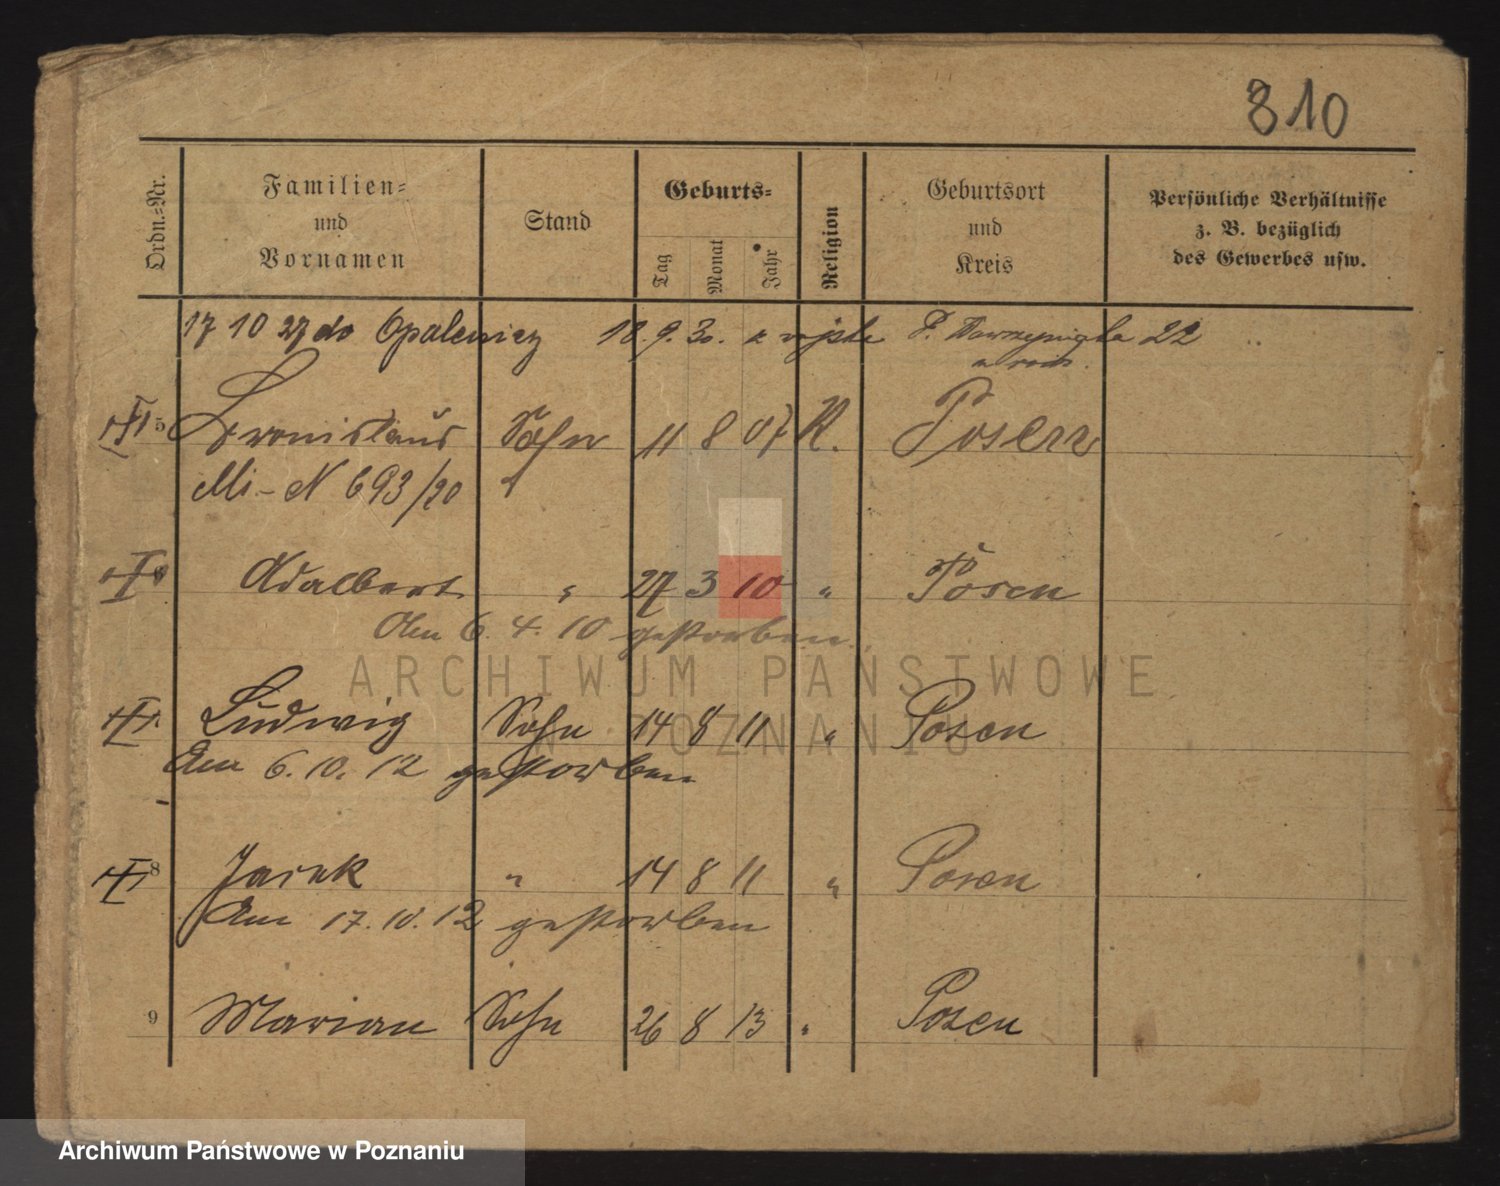 810
Ordn.=Nr. Familien= und Vornamen Stand Geburts= Tag Monat Jahr Religion Geburtsort und Kreis Persönliche Verhältnisse z. B. bezüglich des Gewerbes usw.
17 10 27 do Opalenicy 18. 9. 30. z 22
5 Bronislaus Sohn 11 8 07 K. Posen
Mi-N 693/20
Adalbert " 27 3 10 " Posen
Am 6. 4. 10 gestorben
Ludwig Sohn 14 8 11 " Posen
Am 6. 10. 12 gestorben
8 Jacek " 14 8 11 " Posen
Am 17. 10. 12 gestorben
9 Marian Sohn 26 8 13 " Posen
ARCHIWUM PAŃSTWOWE
W POZNANIU
Archiwum Państwowe w Poznaniu